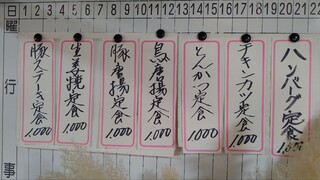 日 1 2 3 4 5 6 7 8 9 10 11 12 13 14 15 16 17 18 19 20 21 22
曜
行
事
ハンバーグ定食
チキンカツ定食 1,000
とんかつ定食 1,000
鳥唐揚定食 1,000
豚唐揚定食 1,000
生姜焼定食 1,000
豚ステーキ定食 1,000